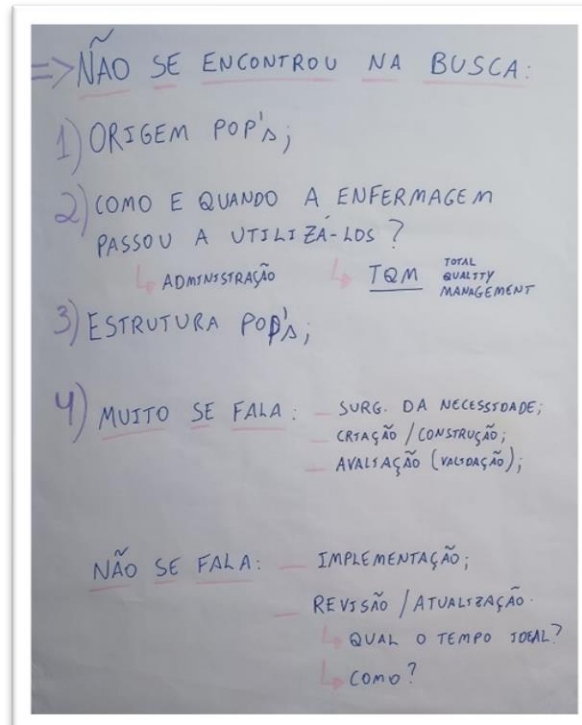 => NÃO SE ENCONTROU NA BUSCA:
1) ORIGEM POP's;
2) COMO E QUANDO A ENFERMAGEM
PASSOU A UTILIZÁ-LOS?
↳ ADMINISTRAÇÃO ↳ TQM TOTAL QUALITY MANAGEMENT
3) ESTRUTURA POP's;
4) MUITO SE FALA: — SURG. DA NECESSIDADE;
— CRIAÇÃO / CONSTRUÇÃO;
— AVALIAÇÃO (VALIDAÇÃO);
NÃO SE FALA: — IMPLEMENTAÇÃO;
— REVISÃO / ATUALIZAÇÃO.
↳ QUAL O TEMPO IDEAL?
↳ COMO?